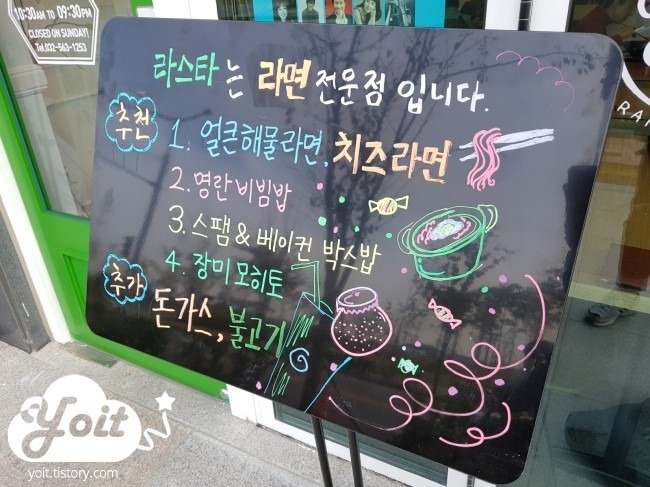 10:30AM TO 09:30PM
CLOSED ON SUNDAY!
Tel.032-563-1253
라스타는 라면 전문점 입니다.
추천
1. 얼큰해물라면, 치즈라면
2. 명란비빔밥
3. 스팸 & 베이컨 박스밥
4. 장미모히토
추가
돈가스, 불고기
Yoit
yoit.tistory.com